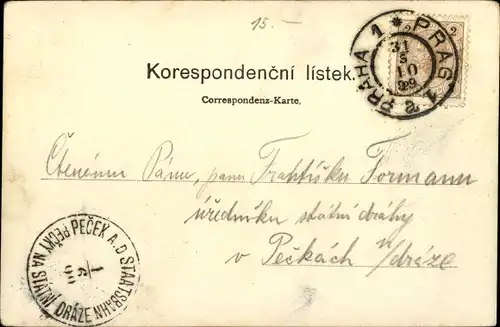 15.-
PRAHA 1 * PRAG 1
31
5
10
99
2
Korespondenční lístek.
Correspondenz-Karte.
Čtenému Pánu, panu Františku Formanu
úředníku státní dráhy
v Pečkách n/dráze
PEČEK A.D. STAATSBAHN
PEČKY NA STÁTNÍ DRÁZE
1
6